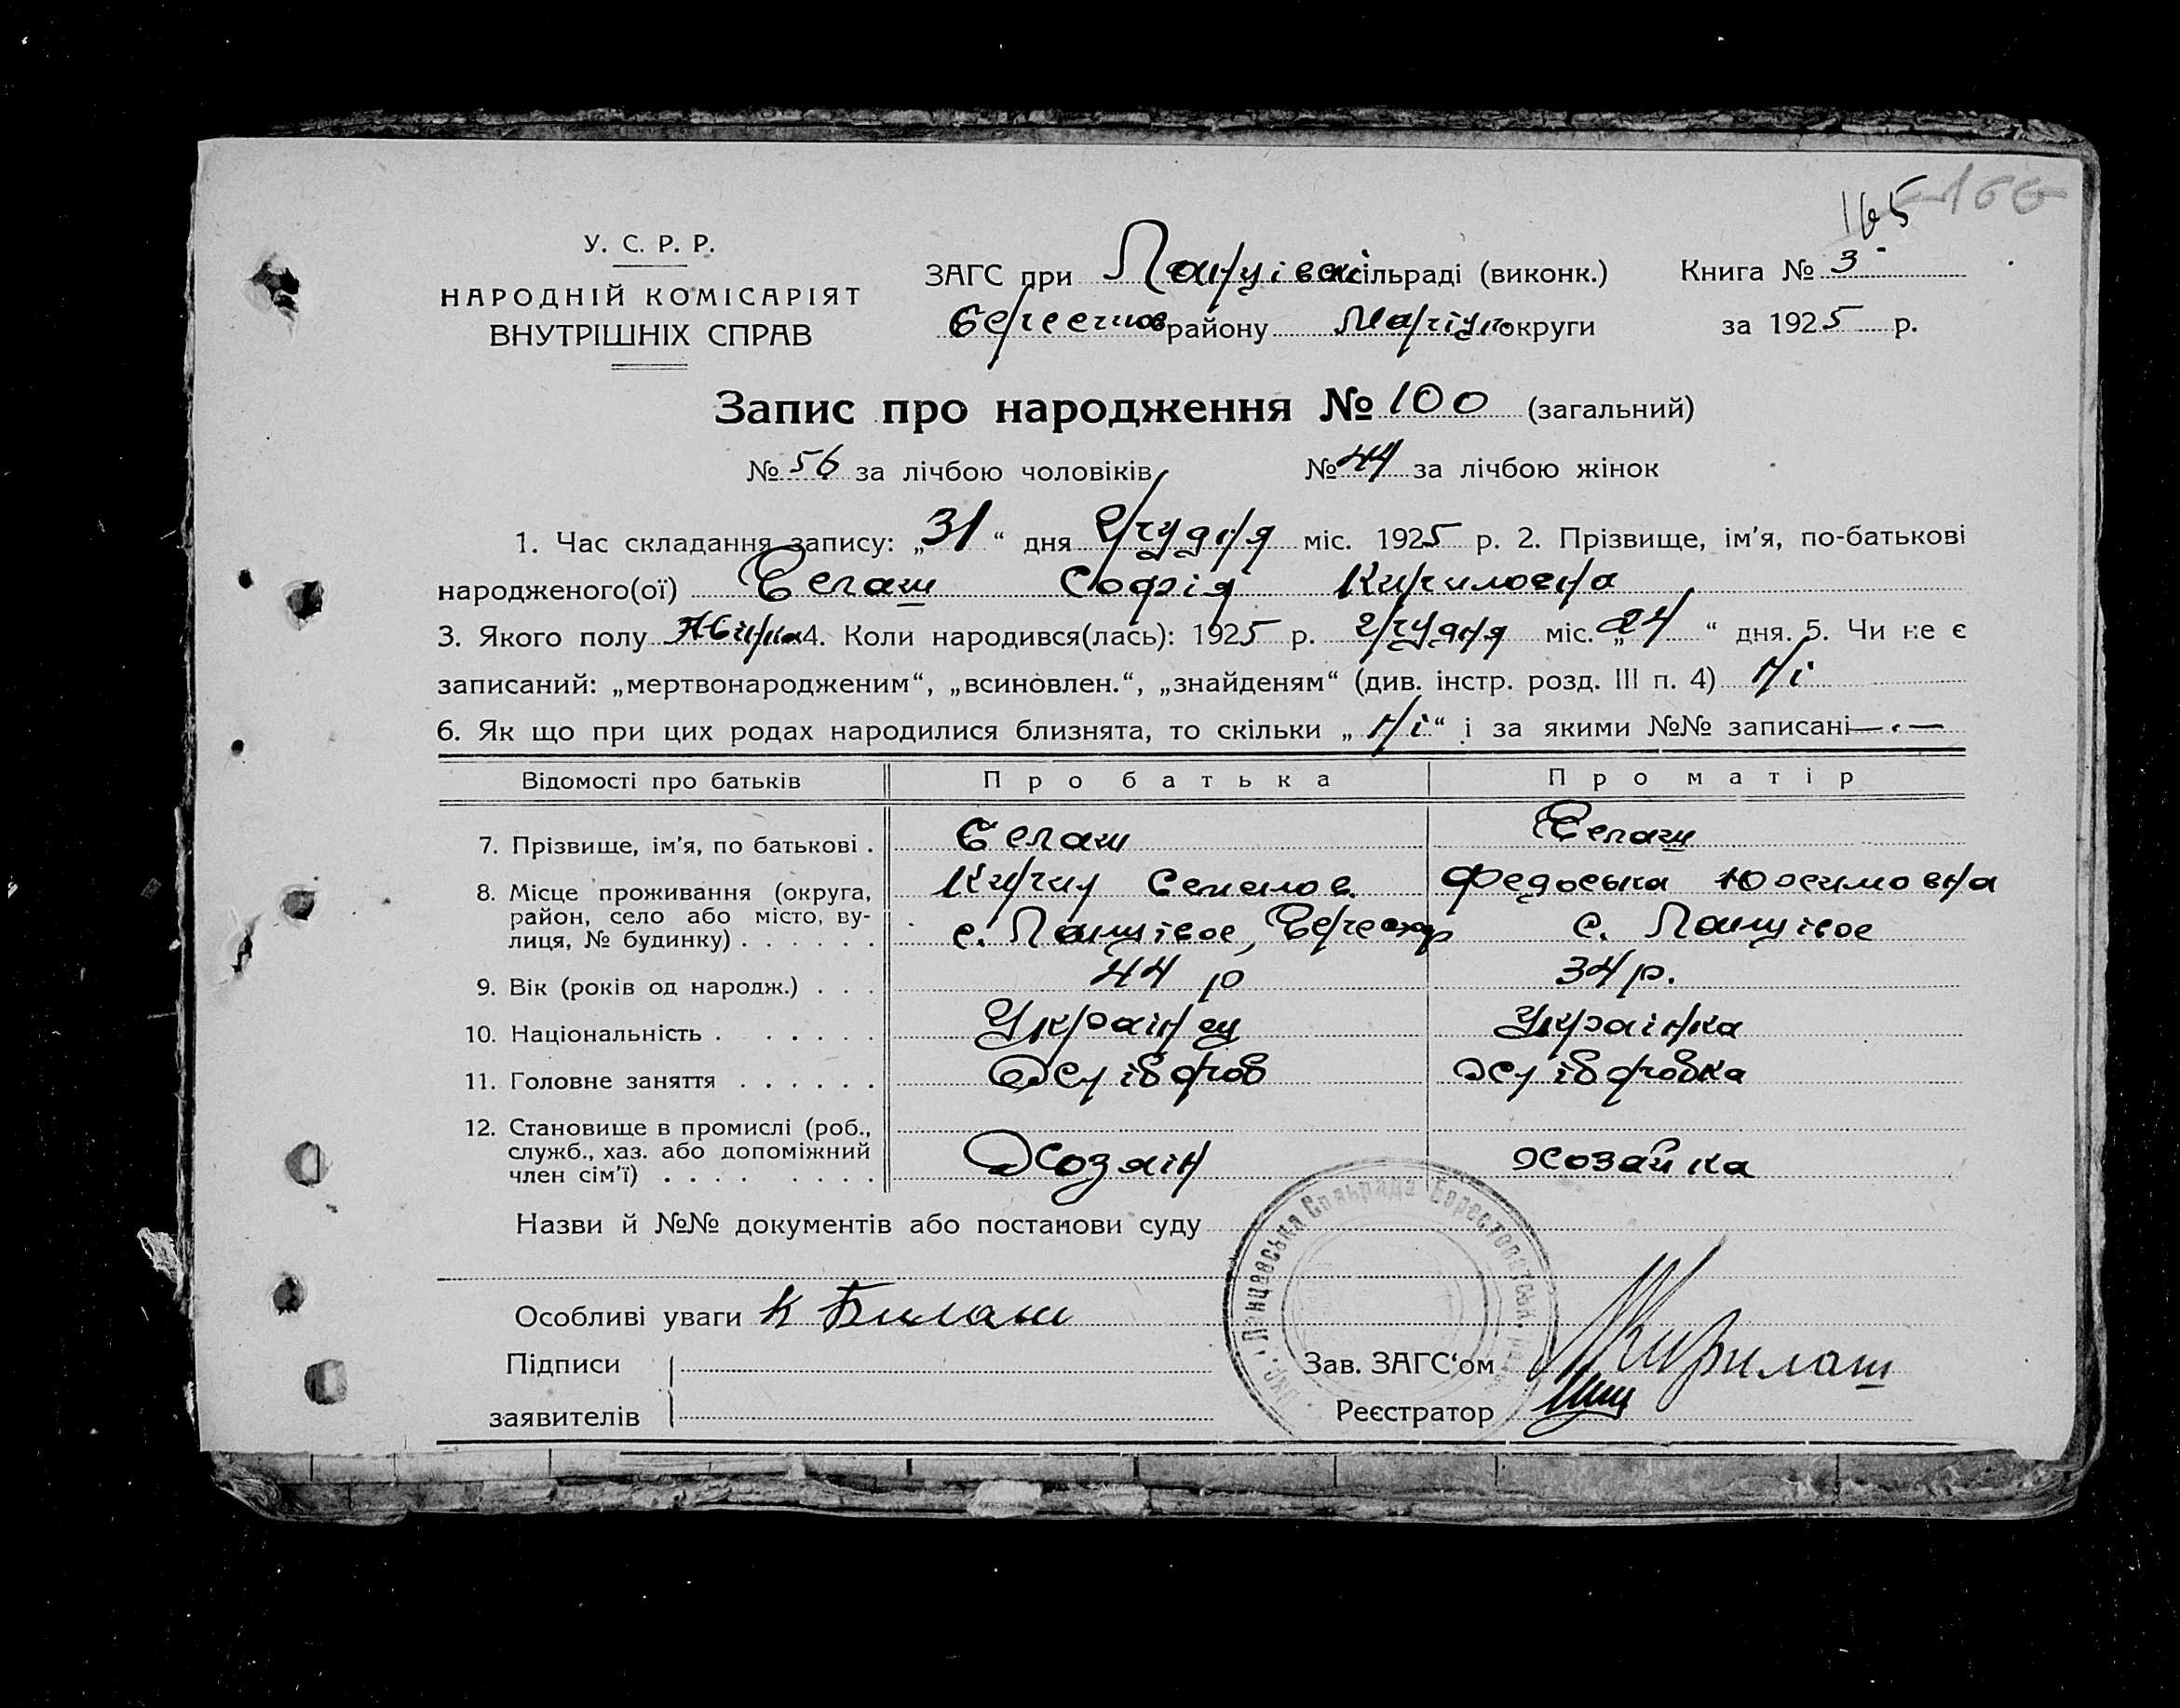 165 166
У. С. Р. Р.
НАРОДНІЙ КОМІСАРІЯТ
ВНУТРІШНІХ СПРАВ
ЗАГС при Ланцівск сільраді (виконк.) Книга № 3
Берестов району Маріуп округи за 1925 р.
Запис про народження № 100 (загальний)
№ 56 за лічбою чоловіків № 44 за лічбою жінок
1. Час складання запису: „31“ дня Грудня міс. 1925 р. 2. Прізвище, ім'я, по-батькові
народженого(ої) Белаш Софія Кириловна
3. Якого полу Жінка 4. Коли народився(лась): 1925 р. грудня міс. „24“ дня. 5. Чи не є
записаний: „мертвонародженим“, „всиновлен.“, „знайденям“ (див. інстр. розд. III п. 4) Ні
6. Як що при цих родах народилися близнята, то скільки „Ні“ і за якими №№ записані —.—
Відомості про батьків Про батька Про матір
7. Прізвище, ім'я, по батькові . Белаш Белаш
8. Місце проживання (округа, район, село або місто, вулиця, № будинку) . . . . . . Кирил Семенов. Федоська
с. Ланцівое, с. Ланцівое
9. Вік (років од народж.) . . . 44 р 34 р.
10. Національність . . . . . . . Українец Українка
11. Головне заняття . . . . . . Хлібороб хлібробка
12. Становище в промислі (роб., служб., хаз. або допоміжний член сім'ї) . . . . . . . . Хозяін хозайка
Назви й №№ документів або постанови суду
Особливі уваги К Билаш
Підписи
заявителів
Зав. ЗАГС‘ом
Реєстратор
Ланцевська Сільрада Берестов